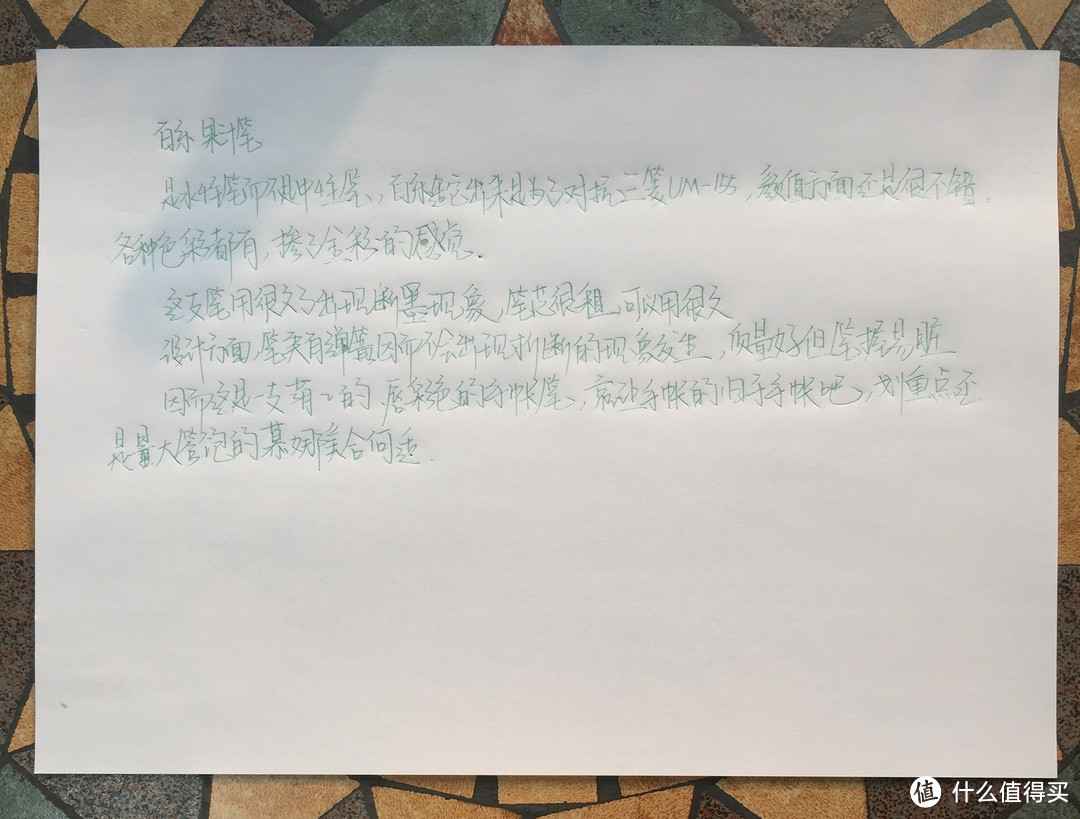 百乐果汁笔
是水性笔而不是中性笔，百乐给它出来是为了对抗三菱UM-155，颜值方面还是很不错，
各种色彩都有，掺了金彩的感觉.
这支笔用很久了出现断墨现象，笔芯很粗，可以用很久
设计方面，笔夹有弹簧因而不会出现折断的现象发生，质量好但笔握易脏
因而这是一支萌萌的 唇彩色的手帐笔，就让手帐的归于手帐吧，划重点还
是量大管饱的慕娜美合何适.
值 什么值得买